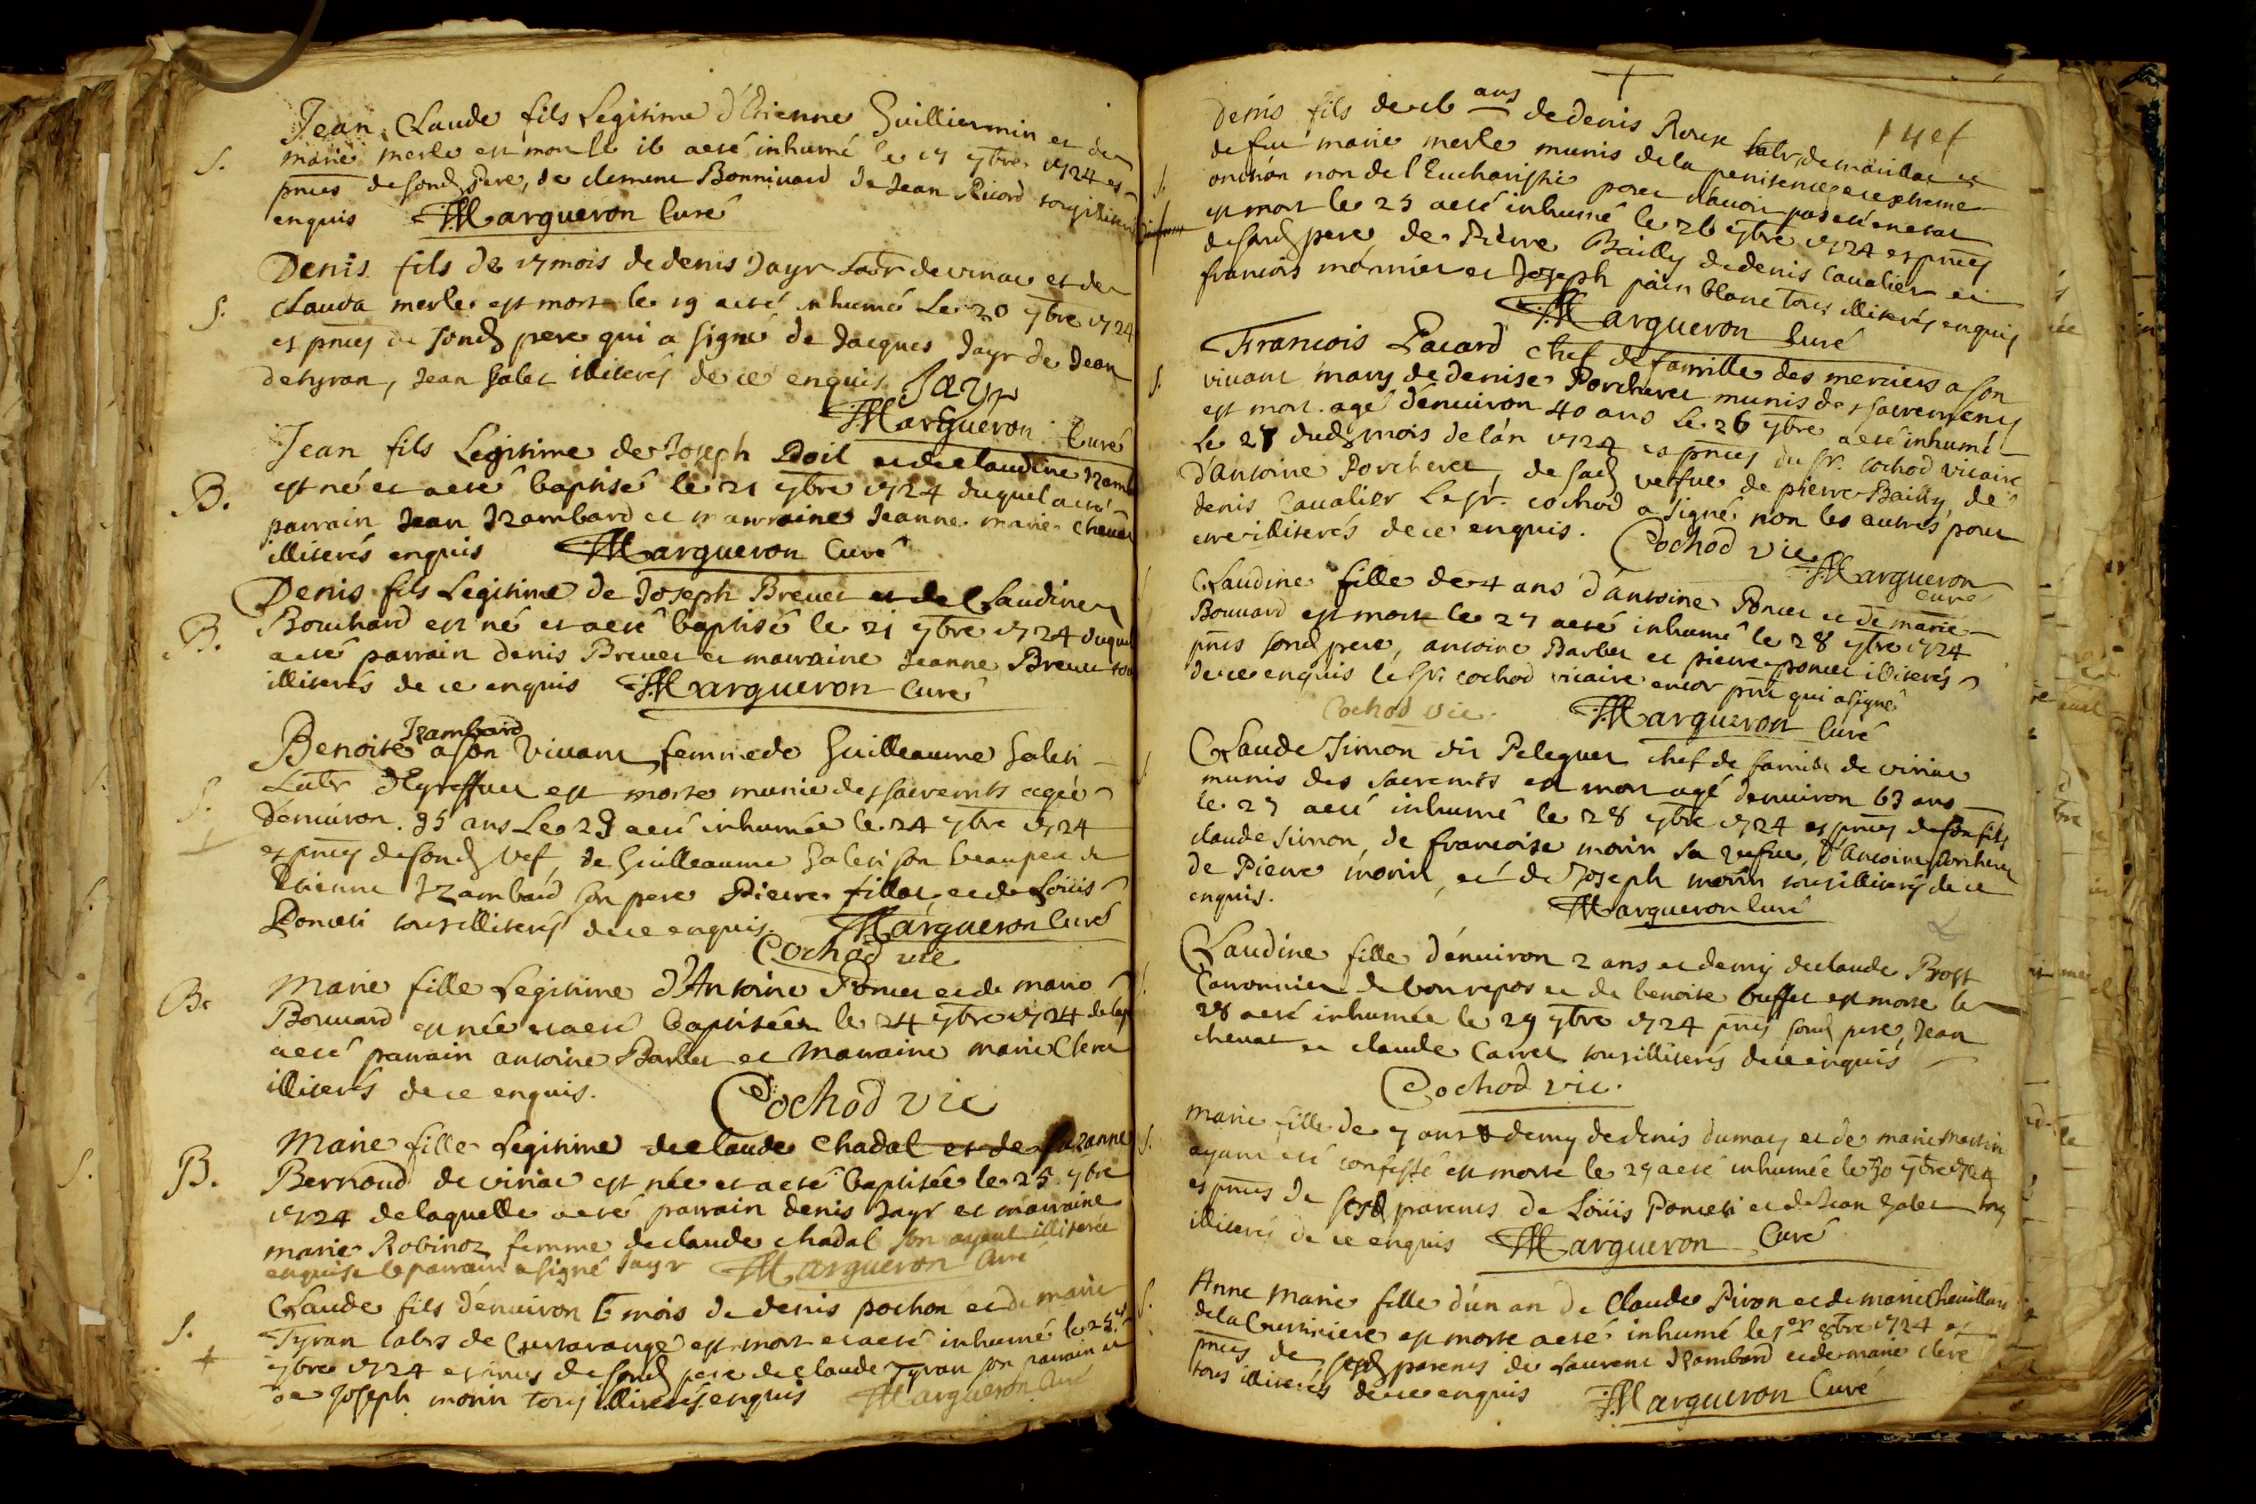 Jean Claude fils Legitime d'Etienne Guilliermin et de
S. marie merle est mort le 16 a eté inhumé le 17 7bre 1724 es
pnces de sond pere, de clement Bonnivard de Jean Ricord tous illiterés
enquis Margueron Curé
Denis fils de 17 mois de denis Jayr Labr de viriac et de
S. Clauda merle est mort le 19 a eté inhumé Le 20 7bre 1724
es pnces de sond pere qui a signé de Jacques Jayr de Jean
de tyran, Jean Galet illiterés de ce enquis Jayr
Margueron Curé
Jean fils Legitime de Joseph Doil et de claudine Izamb
B. est né et a eté baptisé le 21 7bre 1724 duquel a eté
parrain Jean Izambard et marraine Jeanne marie chevat
illiterés enquis Margueron Curé
Denis fils Legitime de Joseph Brevet et de Claudine
B. Bouchard est né et a eté baptisé le 21 7bre 1724 duquel
a eté parrain denis Brevet et marraine Jeanne Brevet tous
illiterés de ce enquis Margueron Curé
Izambard
Benoite a son vivant femme de Guilleaume Galeti
S. Labr est morte munie des sacremts agée
d'environ 35 ans Le 23 a eté inhumée le 24 7bre 1724
es pnces de sond vef, de Guilleaume Galeti son beaupere de
Etienne Izambard son pere Pierre fillat, et de Loüis
Ponceti tous illiterés de ce enquis. Margueron Curé
Cochod vic
B. Marie fille Legitime d'Antoine Poncet et de marie
Bouvard est née et a eté baptisée le 24 7bre 1724 de laq
a eté parrain antoine Barlet et marraine marie Clerct
illiterés de ce enquis. Cochod vic
Marie fille Legitime de claude Chadal et de suzanne
B. Bernoud de viriac est née et a eté baptisée le 25 7bre
1724 de laquelle a eté parrain denis Jayr et marraine
marie Robinot femme de claude chadal son ayeul illiterée
enquise le parrain a signé Jayr Margueron Curé
Claude fils d'environ 6 mois de denis pochon et de marie
S. Tyran labrs de est mort et a eté inhumé le 25
7bre 1724 es pnces de sond pere de claude Tyran son parrain et
de Joseph morin tous illiterés enquis Margueron Curé
Denis fils de 16 ans de denis Roux labr de marillac et
de feu marie merle munis de la penitence et extreme
onction non de l'Eucharistie pour n'avoir pas eté en etat
est mort le 25 a eté inhumé le 26 7bre 1724 es pnces
de sond pere de Pierre Bailly de denis Cavalier et
francois monnier et Joseph pain blanc tous illiterés enquis
Margueron Curé
Francois Pacard chef de famille des merciers a son
S. vivant mary de denise Porcheret munis des sacrements
est mort agé d'environ 40 ans Le 26 7bre a eté inhumé
Le 27 dud mois de l'an 1724 es pnces du sr. cochod vicaire
d'antoine Porcheret, de sad vefue de pierre Bailly, de
denis Cavalier Le sr. cochod a signé non les autres pour
etre illiterés de ce enquis. Cochod vic
Margueron
Curé
Claudine fille de 4 ans d'antoine Poncet et de marie
Bouvard est morte le 27 a eté inhumé le 28 7bre 1724
pnts sond pere, antoine Barlet et pierre poncet illiterés
de ce enquis le Sr. cochod vicaire encor pnt qui a signé
Cochod vic. Margueron Curé
Claude Simon dit Peleguet chef de famille de viriac
munis des sacremts est mort agé d'environ 63 ans
le 27 a eté inhumé le 28 7bre 1724 es pnces de son fils
claude simon, de francoise morin sa vefue, d'Antoine Porcheret
de Pierre morin, et de Joseph morin tous illiterés de ce
enquis. Margueron Curé
Claudine fille d'environ 2 ans et demy de claude Prost
Canonnier de bonrepos et de benoite buffet est morte le
28 a eté inhumée le 29 7bre 1724 pnts sond pere, Jean
chevat et claude Carret tous illiterés de ce enquis
Cochod vic.
S. marie fille de 7 ans & demy de denis dumas et de marie martin
ayant eté confessé est morte le 29 a eté inhumée le 30 7bre 1724
es pnces de sesd parents de Loüis Ponceti et de Jean Galet tous
illiterés de ce enquis Margueron Curé
S. Anne Marie fille d'un an de Claude Piron et de marie
de la est morte a eté inhumé le 1er 8bre 1724 es
pnces de sesd parents de Laurent Izambard et de marie clere
tous illiterés de ce enquis Margueron Curé